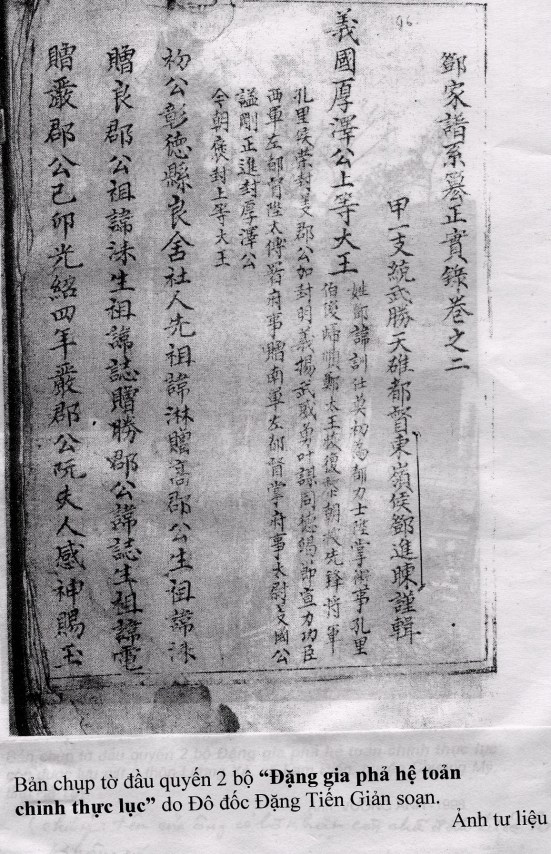 96.
鄧家譜系纂正實錄卷之二
甲一支統武勝天雄都督東嶺侯鄧進暕謹輯
義國厚澤公上等大王
姓鄧諱訓仕莫初為都力士陞掌衛事孔里
伯後歸順鄭太王恢復黎朝先鋒將軍
孔里侯榮封郡公加封明義揚武威勇叶謀同德竭節宣力功臣
西軍左都督陞太傅署府事贈南軍左都督掌府事太尉義國公
謚剛正進封厚澤公
今朝褒封上等大王
初公彰德縣良舍社人先祖諱淋贈高郡公生祖諱洙
贈良郡公祖諱洙生祖諱誌贈勝郡公諱誌生祖諱電
贈嚴郡公己卯光紹四年嚴郡公阮夫人感神賜玉
Bản chụp tờ đầu quyến 2 bộ “Đặng gia phả hệ toản
chinh thực lục” do Đô đốc Đặng Tiến Giản soạn.
Ảnh tư liệu